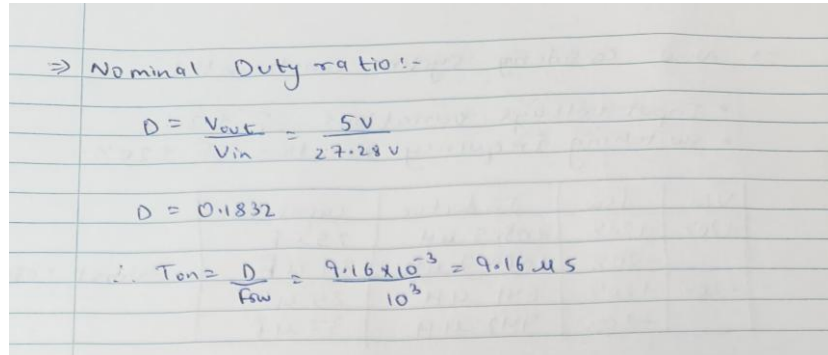 ⇒ Nominal Duty ratio:-
D = Vout / Vin = 5V / 27.28 V
D = 0.1832
∴ Ton = D / Fsw = 9.16 x 10⁻³ / 10³ = 9.16 µs